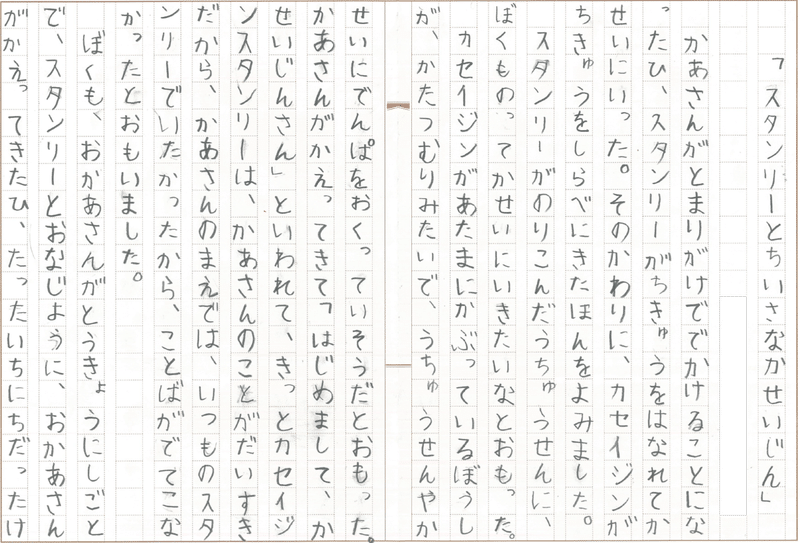 「スタンリーとちいさなかせいじん」
かあさんがとまりがけででかけることにな
ったひ、スタンリーがちきゅうをはなれてか
せいにいった。そのかわりに、カセイジンが
ちきゅうをしらべにきたほんをよみました。
スタンリーがのりこんだうちゅうせんに、
ぼくものってかせいにいきたいなとおもった。
カセイジンがあたまにかぶっているぼうし
が、かたつむりみたいで、うちゅうせんやか
せいにでんぱをおくっていそうだとおもった。
かあさんがかえってきて「はじめまして、か
せいじんさん」といわれて、きっとカセイジ
ンスタンリーは、かあさんのことがだいすき
だから、かあさんのまえでは、いつものスタ
ンリーでいたかったから、ことばがでてこな
かったとおもいました。
ぼくも、おかあさんがとうきょうにしごと
で、スタンリーとおなじように、おかあさん
がかえってきたひ、たったいちにちだったけ